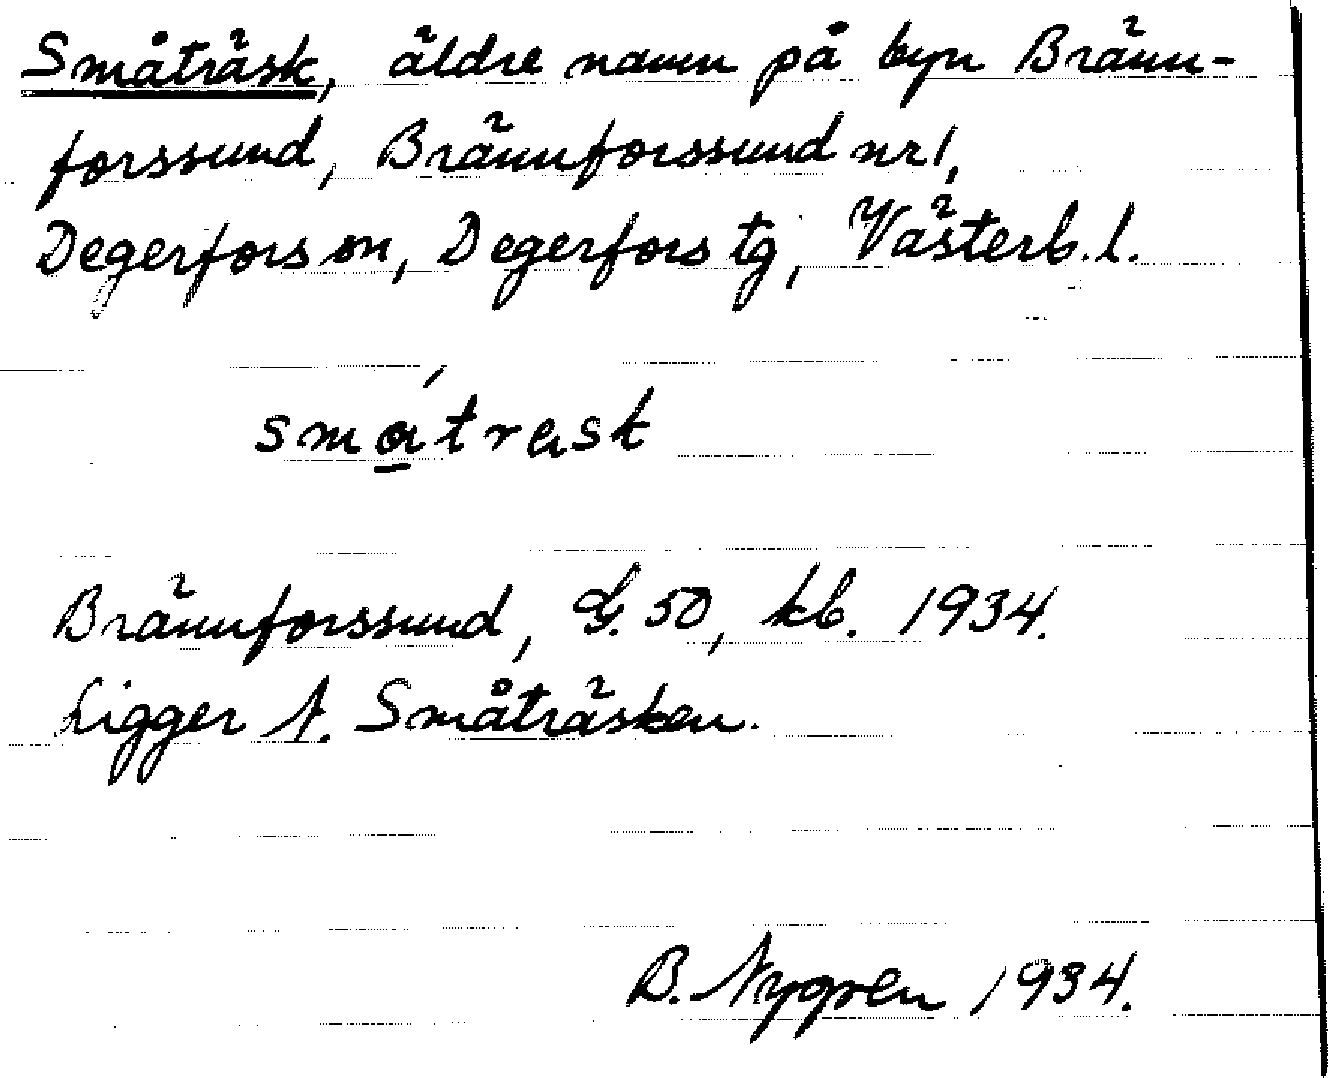 Småträsk, äldre namn på byn Bränn-
forssund, Brännforssund nr 1,
Degerfors sn, Degerfors tg, Västerb. l.
Brännforssund, G. 50, kb. 1934.
Ligger N. Småträsken.
B. Nygren 1934.